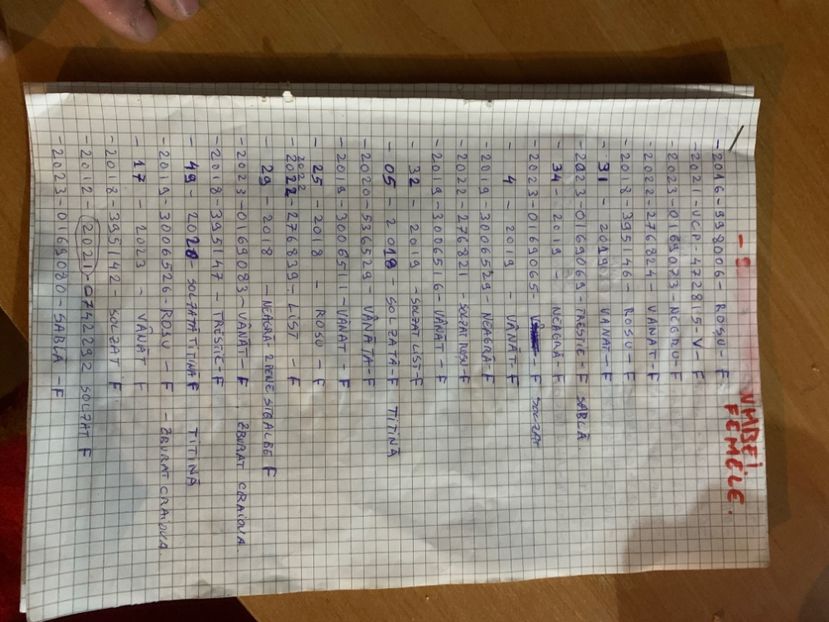 FEMELE.
- 2016-998006- ROȘU - F
- 2021-UCP-472815-V - F
- 2023-0169073-NEGRU-F
- 2022-276824- VÂNAT-F
- 2018-395146- ROȘU-F
- 31 - 2019 VÂNAT-F
- 2023-0169069-TRESTIE-F SABLĂ
- 34-2019- NEAGRĂ-F
- 2023-0169065- F SOLZAT
- 4 - 2019 - VÂNĂT-F
- 2019-3006529-NEAGRĂ-F
- 2022-276821-SOLZAT ROȘU-F
- 2019-3006516-VÂNAT-F
- 32 - 2019 -SOLZAT LIST-F
- 05 - 2018 - SOLZATĂ-F TITINĂ
- 2020-536529-VÂNĂTĂ-F
- 2019-3006511-VÂNAT-F
- 25 - 2018 - ROȘU - F
2022
- 2022-276839-LIST - F
- 29 - 2018 -NEAGRĂ 2 PENE ALBE F
- 2023-0169083-VÂNAT-F ZBURAT CRAIOVA
- 2018-395147-TRESTIE-F
- 49 - 2020-SOLZATĂ TITINĂ F TITINĂ
- 2019-3006526-ROȘU - F - ZBURAT CRAIOVA
- 17 - 2023 - VÂNĂT F
- 2018-395142-SOLZAT F
- 2012-2021-0742292 SOLZAT F
- 2023-0169080-SABLĂ-F